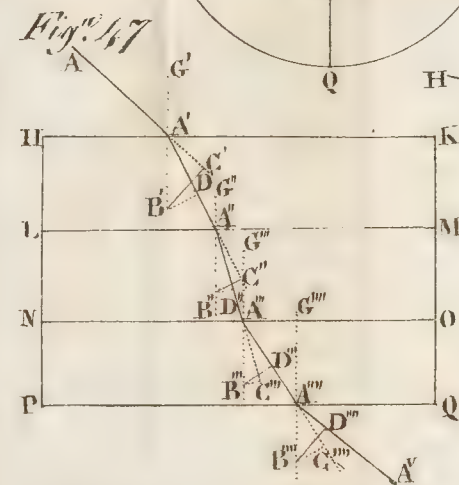 Fig.ᵉ 47
Q
H
A
G'
H A' K
C'
D' G''
B'
L A'' M
G'''
C''
B'' D'' A''' G''''
N O
D'''
B''' C'''
P A'''' Q
D''''
B'''' C''''
Aⱽ